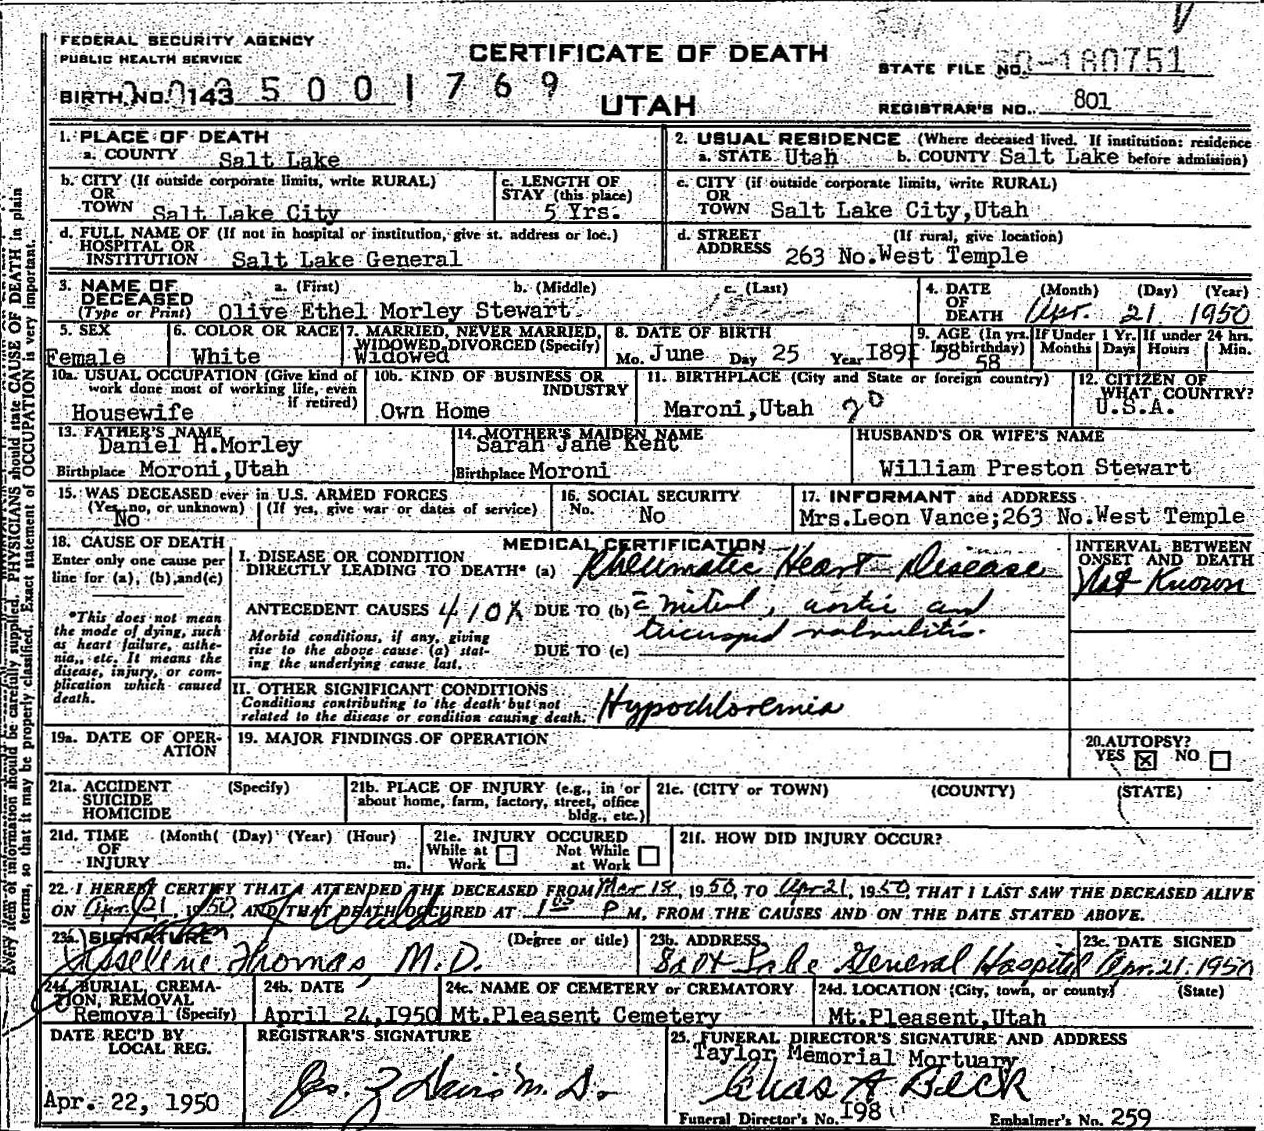 FEDERAL SECURITY AGENCY
PUBLIC HEALTH SERVICE
CERTIFICATE OF DEATH
UTAH
STATE FILE NO. 180751
BIRTH NO. 143 5 0 0 1 7 6 9
REGISTRAR'S NO. 801
1. PLACE OF DEATH
a. COUNTY Salt Lake
2. USUAL RESIDENCE (Where deceased lived. If institution: residence before admission)
a. STATE Utah b. COUNTY Salt Lake
b. CITY (If outside corporate limits, write RURAL)
OR
TOWN Salt Lake City
c. LENGTH OF
STAY (this place)
5 Yrs.
c. CITY (if outside corporate limits, write RURAL)
OR
TOWN Salt Lake City,Utah
d. FULL NAME OF (If not in hospital or institution, give st. address or loc.)
HOSPITAL OR
INSTITUTION Salt Lake General
d. STREET (If rural, give location)
ADDRESS 263 No.West Temple
3. NAME OF a. (First) b. (Middle) c. (Last)
DECEASED
(Type or Print) Olive Ethel Morley Stewart
4. DATE (Month) (Day) (Year)
OF
DEATH Apr. 21 1950
5. SEX
Female
6. COLOR OR RACE
White
7. MARRIED, NEVER MARRIED,
WIDOWED, DIVORCED (Specify)
Widowed
8. DATE OF BIRTH
Mo. June Day 25 Year 1891
9. AGE (In yrs. last birthday)
58
58
If Under 1 Yr. If under 24 hrs.
Months Days Hours Min.
10a. USUAL OCCUPATION (Give kind of
work done most of working life, even
if retired)
Housewife
10b. KIND OF BUSINESS OR
INDUSTRY
Own Home
11. BIRTHPLACE (City and State or foreign country)
Maroni,Utah
12. CITIZEN OF
WHAT COUNTRY?
U.S.A.
13. FATHER'S NAME
Daniel H.Morley
Birthplace Moroni,Utah
14. MOTHER'S MAIDEN NAME
Sarah Jane Kent
Birthplace Moroni
HUSBAND'S OR WIFE'S NAME
William Preston Stewart
15. WAS DECEASED ever in U.S. ARMED FORCES
(Yes, no, or unknown) (If yes, give war or dates of service)
No
16. SOCIAL SECURITY
No. No
17. INFORMANT and ADDRESS
Mrs.Leon Vance;263 No.West Temple
18. CAUSE OF DEATH
Enter only one cause per
line for (a), (b), and (c)
*This does not mean
the mode of dying, such
as heart failure, asthe-
nia,, etc. It means the
disease, injury, or com-
plication which caused
death.
MEDICAL CERTIFICATION
I. DISEASE OR CONDITION
DIRECTLY LEADING TO DEATH* (a) Rheumatic Heart Disease
ANTECEDENT CAUSES 410X DUE TO (b) c̄ mitral, aortic and
tricuspid valvulitis.
Morbid conditions, if any, giving
rise to the above cause (a) stat-
ing the underlying cause last.
DUE TO (c)
INTERVAL BETWEEN
ONSET AND DEATH
Not Known
II. OTHER SIGNIFICANT CONDITIONS
Conditions contributing to the death but not
related to the disease or condition causing death. Hypochloremia
19a. DATE OF OPER-
ATION
19. MAJOR FINDINGS OF OPERATION
20. AUTOPSY?
YES ☒ NO ☐
21a. ACCIDENT (Specify)
SUICIDE
HOMICIDE
21b. PLACE OF INJURY (e.g., in or
about home, farm, factory, street, office
bldg., etc.)
21c. (CITY OR TOWN) (COUNTY) (STATE)
21d. TIME (Month( (Day) (Year) (Hour)
OF
INJURY m.
21e. INJURY OCCURED
While at Work ☐ Not While at Work ☐
21f. HOW DID INJURY OCCUR?
22. I HEREBY CERTIFY THAT I ATTENDED THE DECEASED FROM Mar 18, 1950, TO Apr 21, 1950, THAT I LAST SAW THE DECEASED ALIVE
ON Apr. 21, 1950, AND THAT DEATH OCCURED AT 1:05 P M., FROM THE CAUSES AND ON THE DATE STATED ABOVE.
23a. SIGNATURE (Degree or title)
Thomas, M.D.
23b. ADDRESS
Salt Lake General Hospital
23c. DATE SIGNED
Apr. 21. 1950
24a. BURIAL, CREMA-
TION, REMOVAL
Removal (Specify)
24b. DATE
April 24,1950
24c. NAME OF CEMETERY OR CREMATORY
Mt.Pleasent Cemetery
24d. LOCATION (City, town, or county) (State)
Mt.Pleasent,Utah
DATE REC'D BY
LOCAL REG.
Apr. 22, 1950
REGISTRAR'S SIGNATURE
25. FUNERAL DIRECTOR'S SIGNATURE AND ADDRESS
Taylor Memorial Mortuary
Chas A Beck
Funeral Director's No. 198 Embalmer's No. 259
Every item of information should be carefully supplied. PHYSICIANS should state CAUSE OF DEATH in plain
terms, so that it may be properly classified. Exact statement of OCCUPATION is very important.